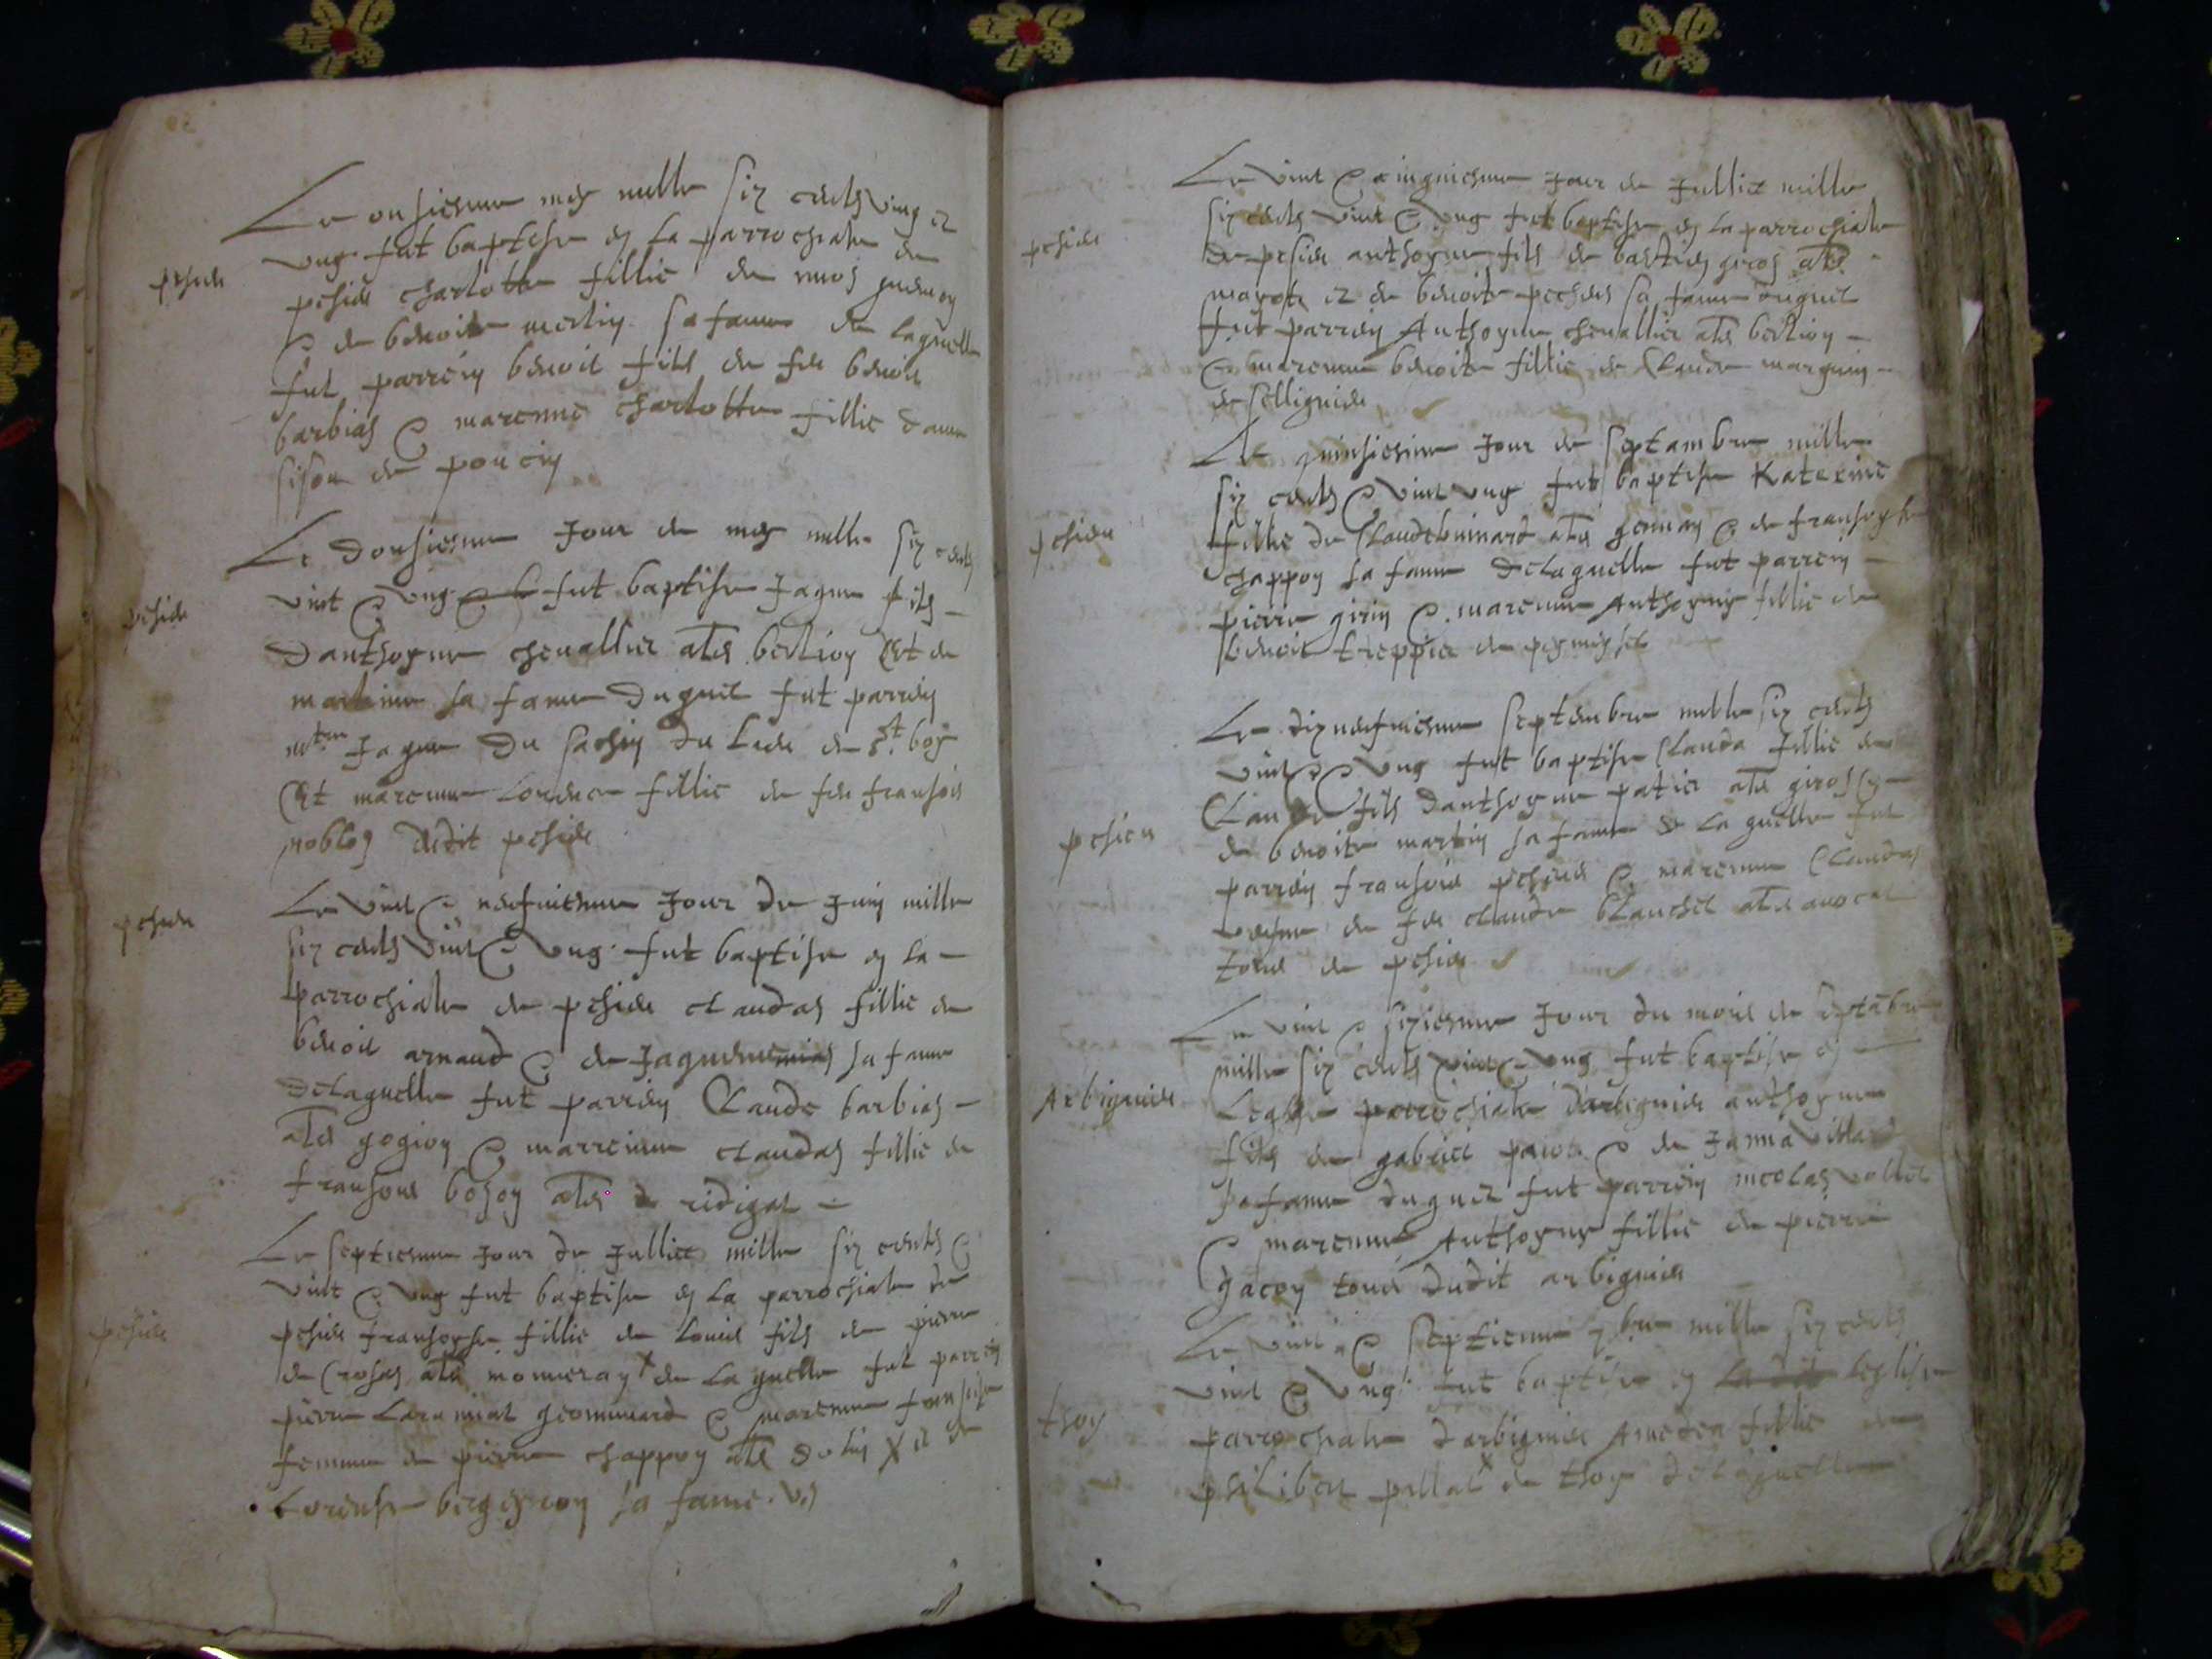 Le onsiesme may mille six cents ving et
ung fut baptise en la parrochiale de
pesieu
pesieu charlotte fillie de
& de benoite merlin sa fame de laquelle
fut parrein benoit fils de feu benoit
barbias & marenne charlotte fillie
de poncin
Le dousiesme Jour de may mille six cents
vint & ung fut baptise Jaque fils
pesieu
danthoyne chevallier als bertion Et de
martine sa fame duquel fut parrein
Jaque du sachin du Lieu de St boys
Et marenne fillie de feu fransois
dudit pesieu
Le vint & neufiesme Jour de Juin mille
pesieu
six cents vint & ung fut baptise en la
parrochiale de pesieu claudaz fillie de
benoit arnaud & de Jaqueme sa fame
delaquelle fut parrein Claude barbias
als gogion & marreine claudaz fillie de
fransois boson als
Le septiesme Jour de Jullict mille six cents &
vint & ung fut baptise en la parrochiale de
pesieu
pesieu fransoyse fillie de Louis fils de pierre
de Crosas als monneray de laquelle fut parrein
pierre & marenne fransoise
femme de pierre chappon als et de
Lorense bergeron sa fame
Le vint & cinquiesme Jour de Jullict mille
six cents vint & ung fut baptise en la parrochiale
pesieu
de pesieu anthoyne fils de bastien giros als
et de benoite sa fame duquel
fut parrein Anthoyne chevallier als bertion
& marenne benoite fillie de Claude marguin
de selligneu
Le quinsiesme Jour de septambre mille
six cents & vint ung fut baptise Katerine
pesieu
fillie de Claude buinard als & de fransoyse
chappon sa fame Delaquelle fut parrein
pierre girin & marenne Anthoyne fillie de
benoit treppier de
Le dix neufviesme septembre mille six cents
vint & ung fut baptise Clauda fillie de
Claude fils danthoyne patier als giros &
pesieu
de benoite martin sa fame de laquelle fut
parrein fransois & marenne Claudaz
vefve de feu claude blanchet als avocat
tous de pesieu
Le vint & sixiesme Jour du mois de septabre
mille six cents vint & ung fut baptise en
Arbignieu
Leglise parrochiale darbignieu anthoyne
fils de gabriel & de Janna villa
sa fame duquel fut parrein nicolas vollet
& marenne Anthoyne fillie de pierre
gacon tous dudit arbignieu
Le vint & septieme 7bre mille six cents
vint & ung fut baptise en Leglise
thoy
parrochiale darbignieu Amedea fillie de
philibert pillat de thoy delaquelle